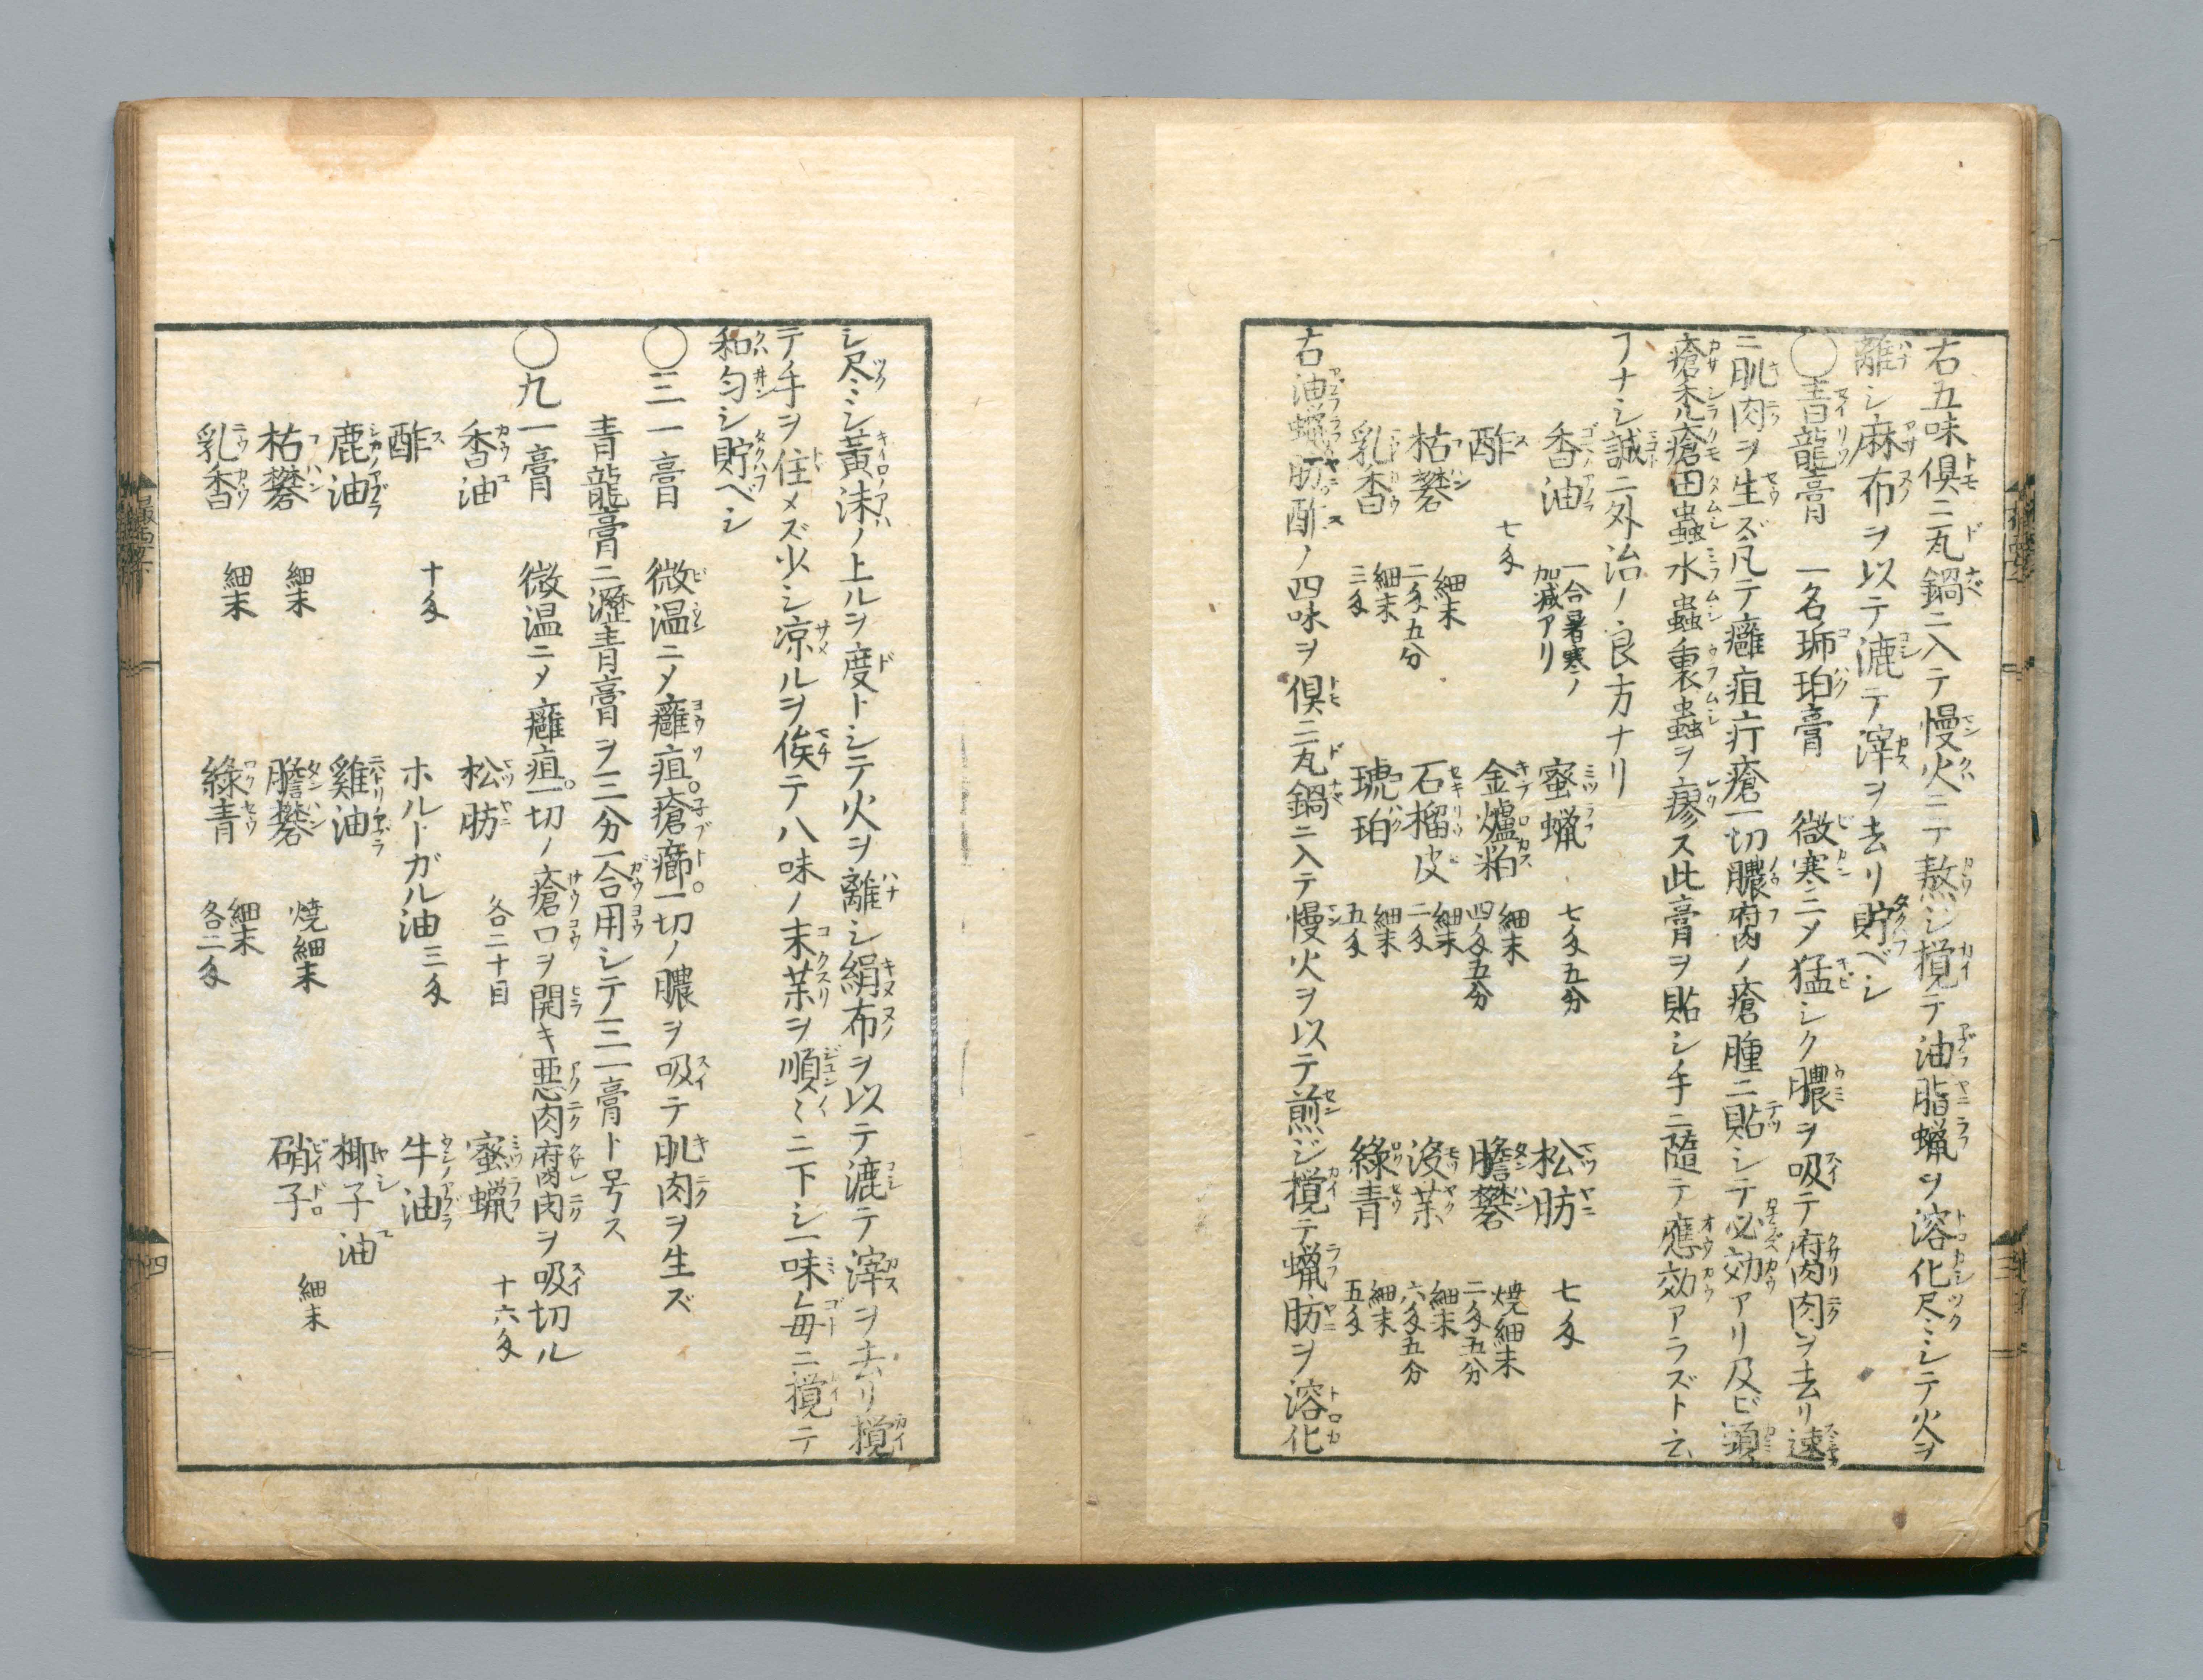 右五味俱ニ丸鍋ニ入テ慢火ニテ熬シ攪テ油脂蝋ヲ溶化尽ミシテ火ヲ
離シ麻布ヲ以テ漉テ滓ヲ去リ貯ベシ
〇青龍膏 一名琥珀膏 微寒ニメ猛シク膿ヲ吸テ腐肉ヲ去リ速
ニ肌肉ヲ生ズ凡テ癰疽疔瘡一切膿腐ノ瘡腫ニ貼シテ必効アリ及ビ頭
瘡禿瘡田蟲水蟲裏蟲ヲ瘳ス此膏ヲ貼シ手ニ隨テ應効アラズト云
フナシ誠ニ外治ノ良方ナリ
香油 一合暑寒ノ加減アリ 蜜蝋 七匁五分 松肪 七匁
酢 七匁 金爐粕 細末四匁五分 膽礬 焼細末二匁五分
枯礬 細末二匁五分 石榴皮 細末二匁 没薬 細末六匁五分
乳香 細末三匁 琥珀 細末五匁 綠青 細末五匁
右油蝋肪酢ノ四味ヲ俱ニ丸鍋ニ入テ慢火ヲ以テ煎ジ攪テ蝋肪ヲ溶化
シ尽ミシ黃沫ノ上ルヲ度トシテ火ヲ離シ絹布ヲ以テ漉テ滓ヲ去リ攪
テ手ヲ住メズ少シ凉ルヲ俟テ八味ノ末薬ヲ順〻ニ下シ一味毎ニ攪テ
和匀シ貯ベシ
〇三一膏 微温ニメ癰疽。瘡癤。一切ノ膿ヲ吸テ肌肉ヲ生ズ
青龍膏ニ瀝青膏ヲ三分一合用シテ三一膏ト号ス
〇九一膏 微温ニメ癰疽。一切ノ瘡口ヲ開キ悪肉腐肉ヲ吸切ル
香油 松肪 各二十目 蜜蝋 十六匁
酢 十匁 ホルトガル油 三匁 牛油
鹿油 雞油 椰子油
枯礬 細末 膽礬 焼細末 硝子 細末
乳香 細末 綠青 細末各二匁
四